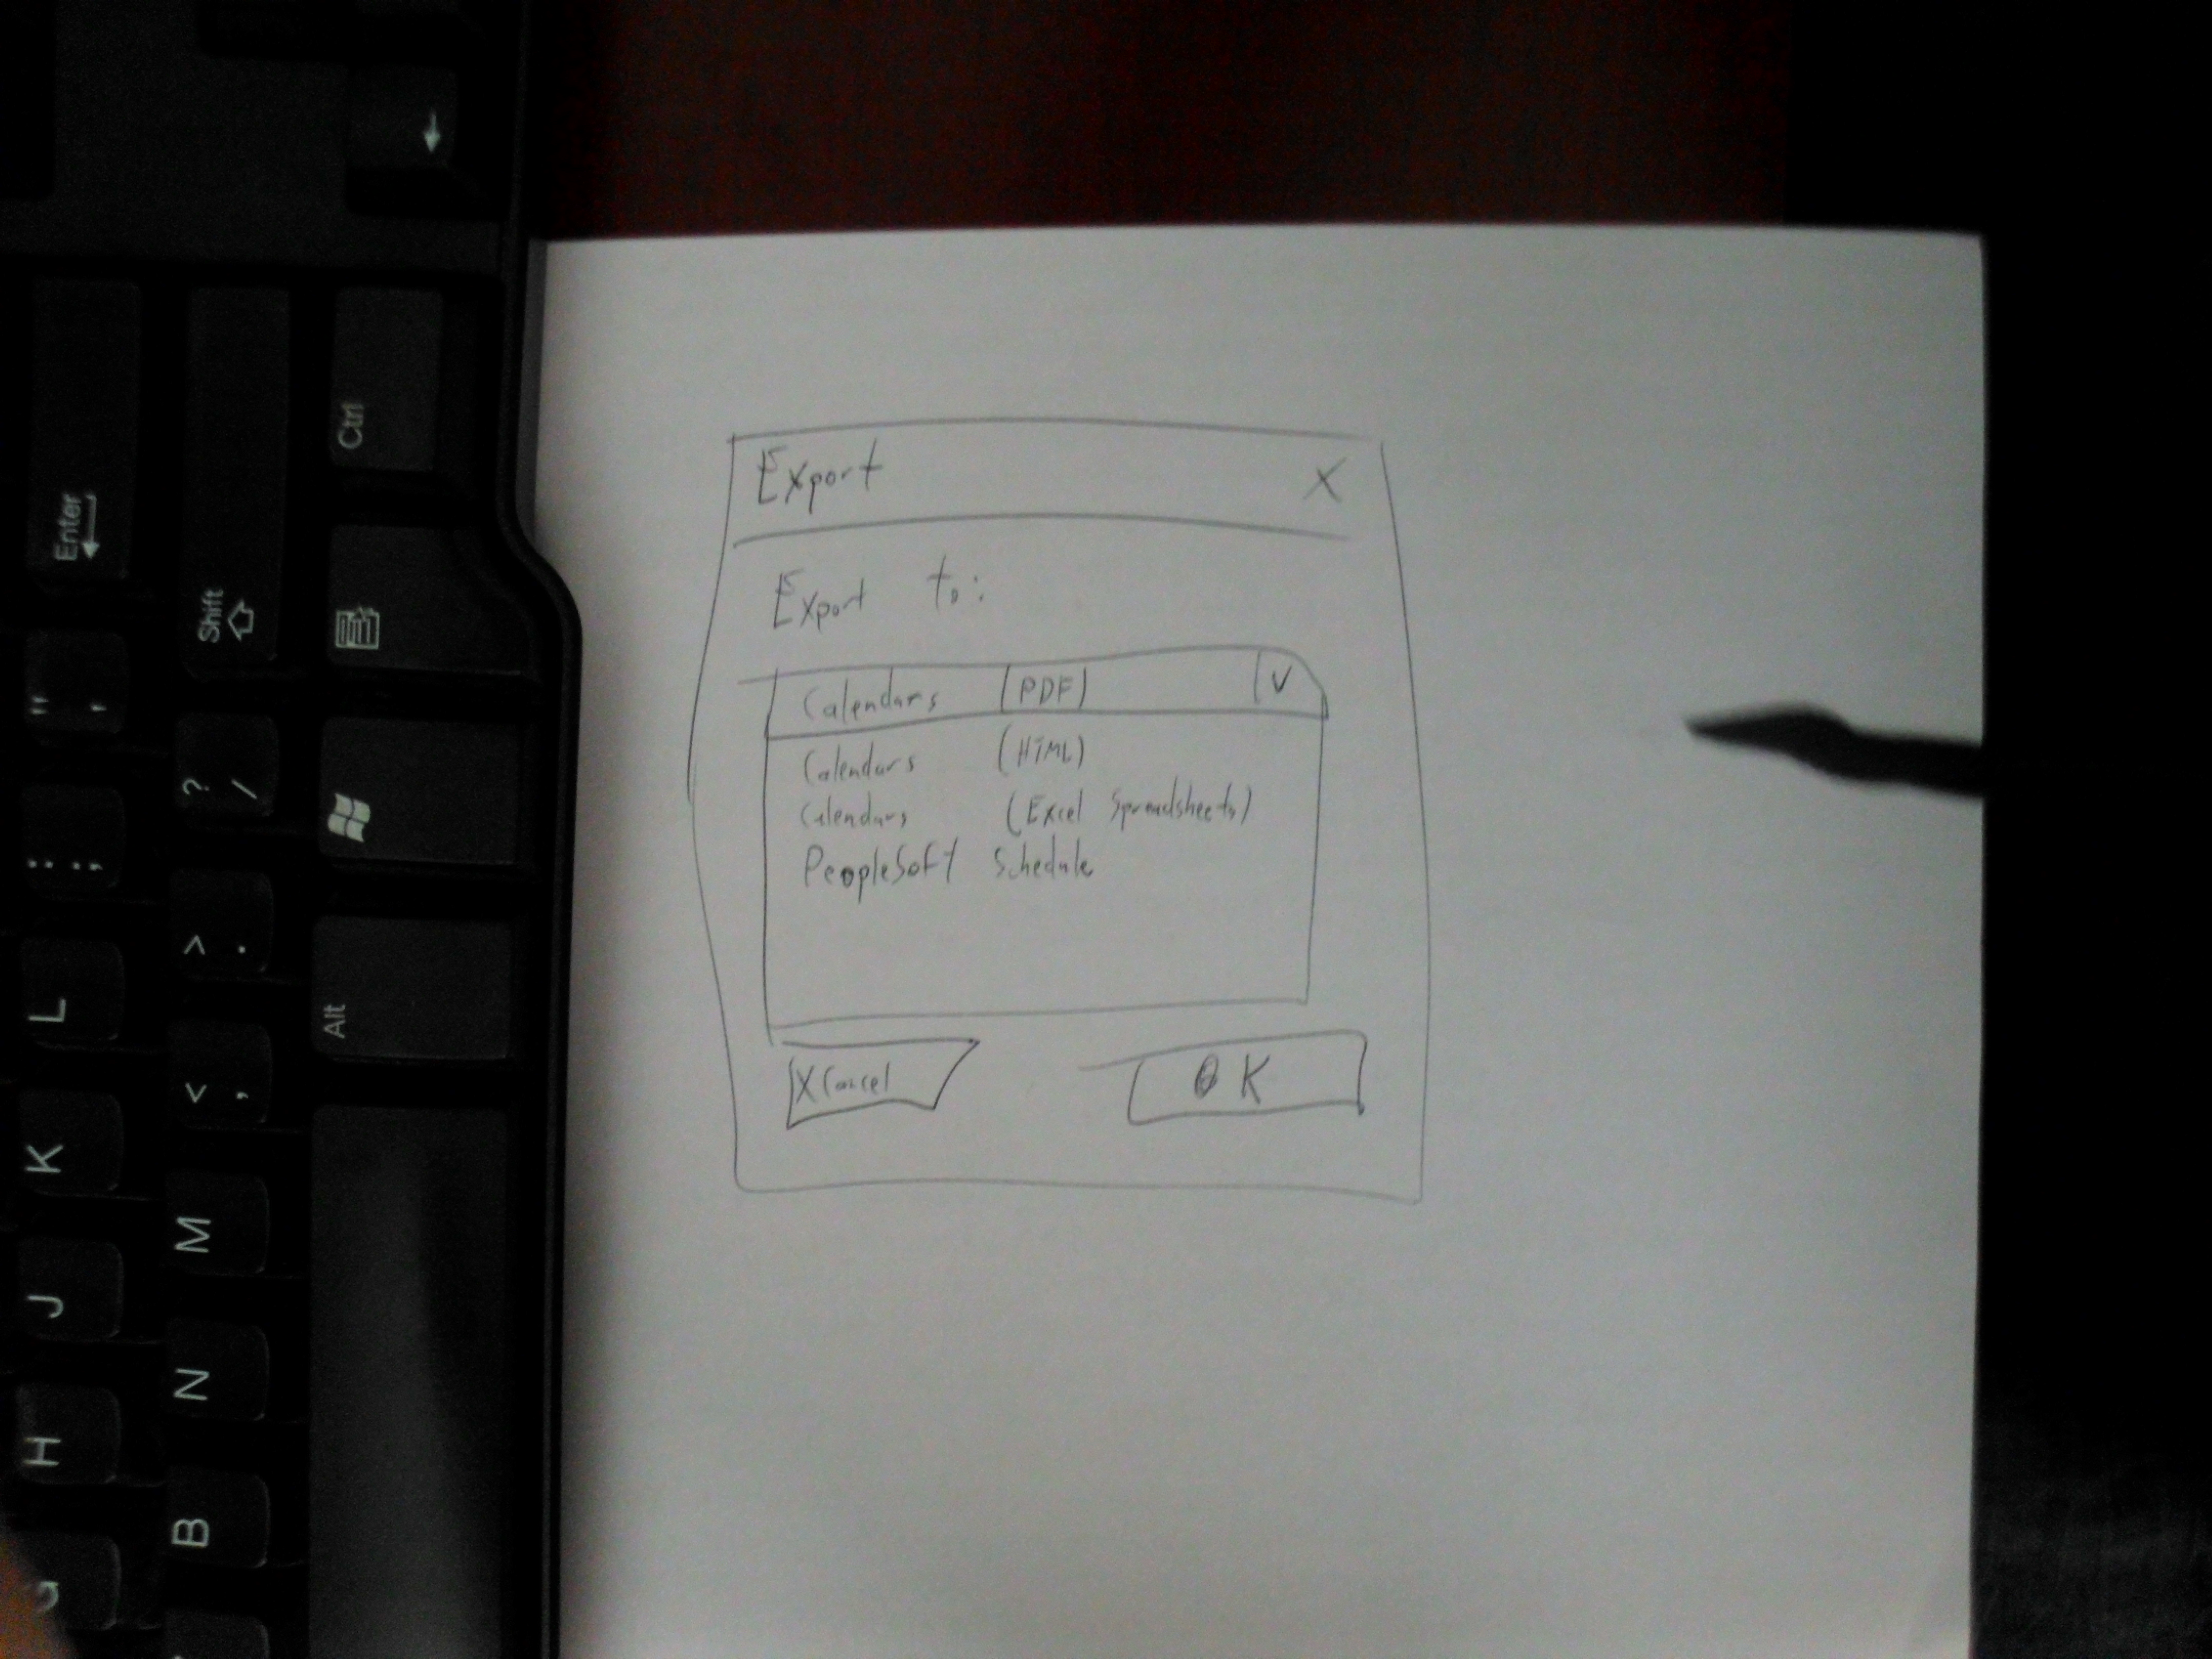 Export X
Export to:
Calendars (PDF) V
Calendars (HTML)
Calendars (Excel Spreadsheets)
PeopleSoft Schedule
X Cancel OK
Enter
Shift
Ctrl
Alt
" '
: ;
? /
> .
< ,
L
K
J
H
G
M
N
B